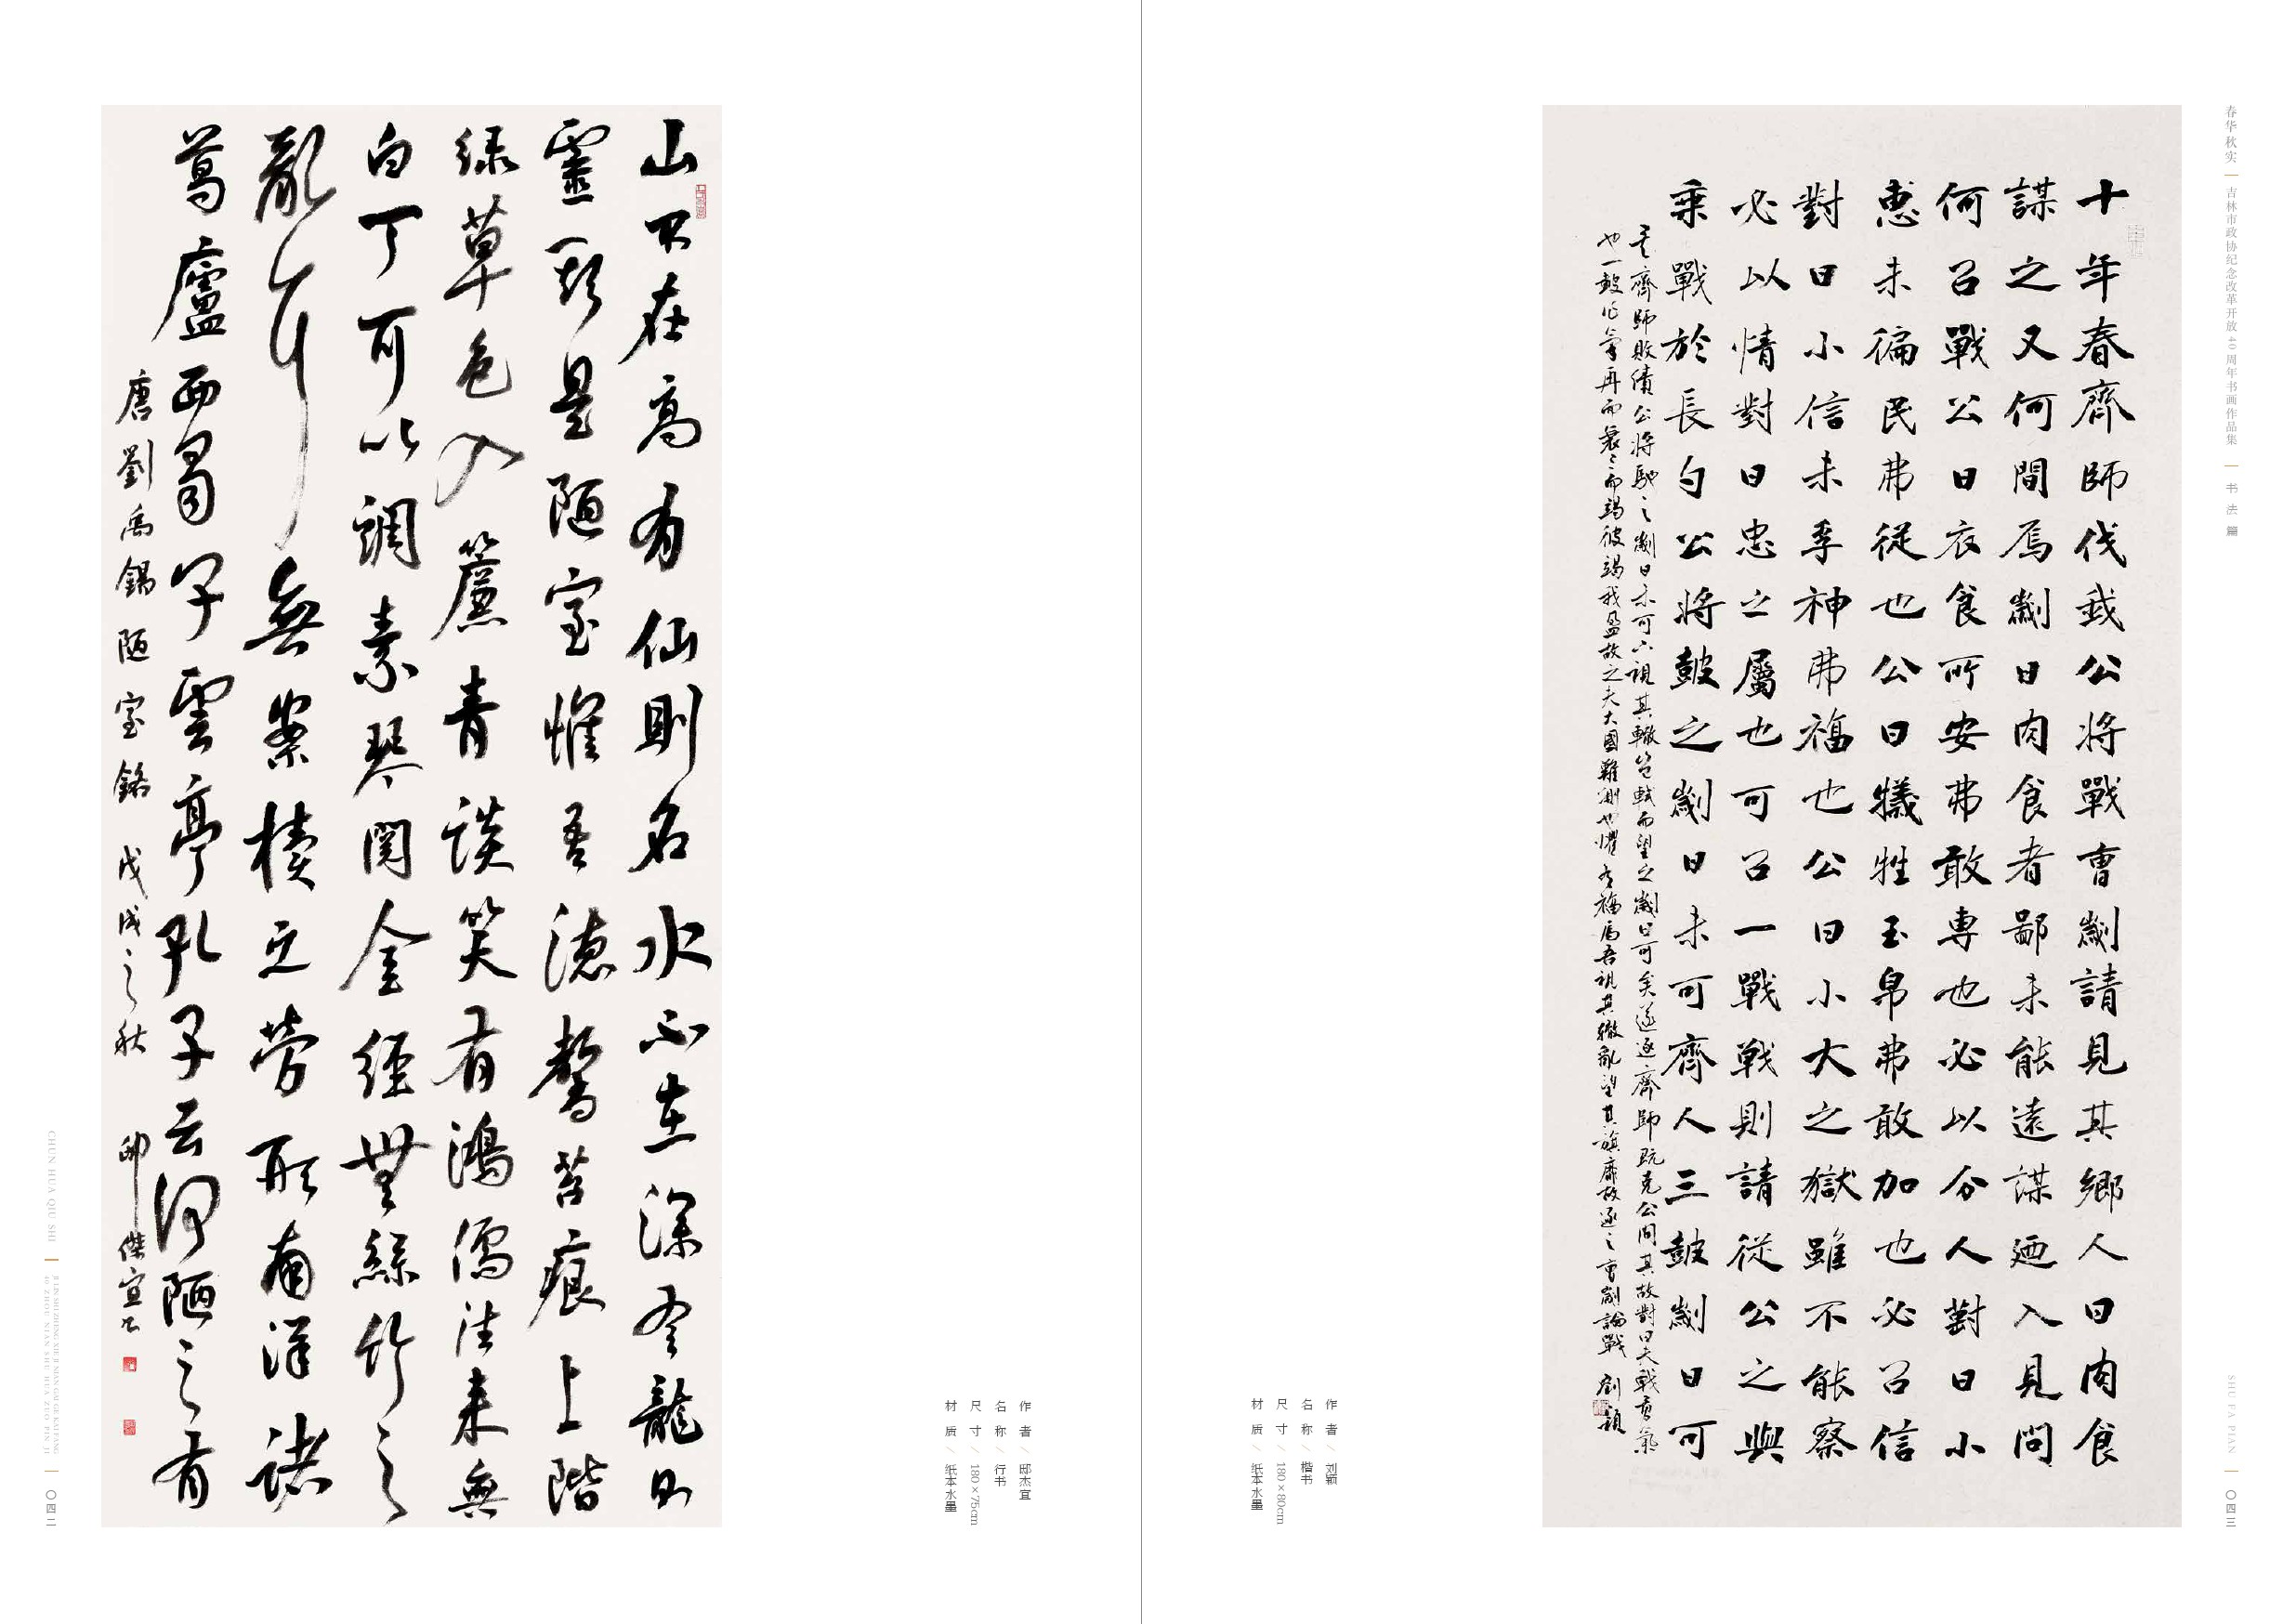 山不在高有仙則名水不在深有龍則
靈斯是陋室惟吾德馨苔痕上階
绿草色入簾青談笑有鴻儒往来無
白丁可以調素琴閱金經無絲竹之
亂耳無案牘之勞形南陽諸
葛廬西蜀子雲亭孔子云何陋之有
唐劉禹錫陋室銘 戊戌之秋 邸傑宣书
作者/邸杰宜
名称/行书
尺寸/180×75cm
材质/纸本水墨
CHUN HUA QIU SHI
JI LIN SHI ZHENG XIE JI NIAN GAI GE KAI FANG
40 ZHOU NIAN SHU HUA ZUO PIN JI
〇四二
春华秋实
吉林市政协纪念改革开放40周年书画作品集
书法篇
十年春齊師伐我公將戰曹劌請見其鄉人曰肉食
謀之又何間焉劌曰肉食者鄙未能遠謀廼入見問
何以戰公曰衣食所安弗敢專也必以分人對曰小
惠未徧民弗從也公曰犧牲玉帛弗敢加也必以信
對曰小信未孚神弗福也公曰小大之獄雖不能察
必以情對曰忠之屬也可以一戰戰則請從公之與
乘戰於長勺公將鼓之劌曰未可齊人三鼓劌曰可
矣齊師敗績公將馳之劌曰未可下視其轍登軾而望之劌曰可矣遂逐齊師既克公問其故對曰夫戰勇氣
也一鼓作氣再而衰三而竭彼竭我盈故之夫大國難測也懼有福焉吾視其轍亂望其旗靡故逐之曹劌論戰 劉穎
作者/刘颖
名称/楷书
尺寸/180×80cm
材质/纸本水墨
SHU FA PIAN
〇四三